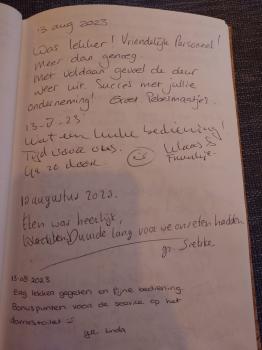 13 aug 2023
Was lekker! Vriendelijk Personeel!
Meer dan genoeg.
Met voldaan gevoel de deur
weer uit. Succes met jullie
onderneming! Groet
13-8-'23
Wat een leuke bediening!
Tijd voor ons.
Ga zo door
Klaas &
12 augustus 2023.
Eten was heerlijk,
Duurde lang voor we ons eten hadden.
gr. Sietske
13-08-2023
Erg lekker gegeten en fijne bediening.
Bonuspunten voor de service op het
damestoilet
gr. Linda